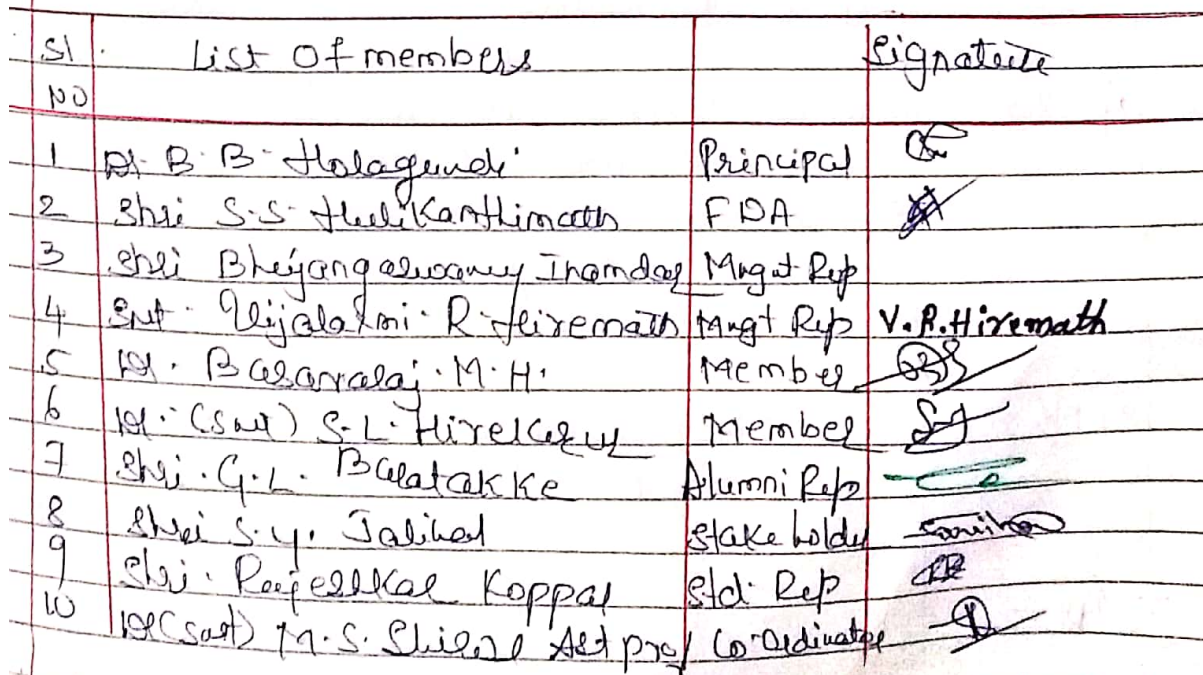 Sl. List of members Signature
NO
1 Dr. B. B. Holagundi Principal
2 Shri S.S. Hulikanthimath FDA
3 Shri Inamdar Mngt Rep
4 Smt. Vijalaxmi. R. Hiremath Mngt Rep V.R.Hiremath
5 Dr. Basavaraj. M. H. Member
6 Dr. (Smt) S.L. Hirekury Member
7 Shri. G.L. Baratakke Alumni Rep
8 Shri S.Y. Jalihal Stake holder
9 Shri. Koppal Std. Rep
10 Dr (Smt) M.S. Ast prof Co-ordinator